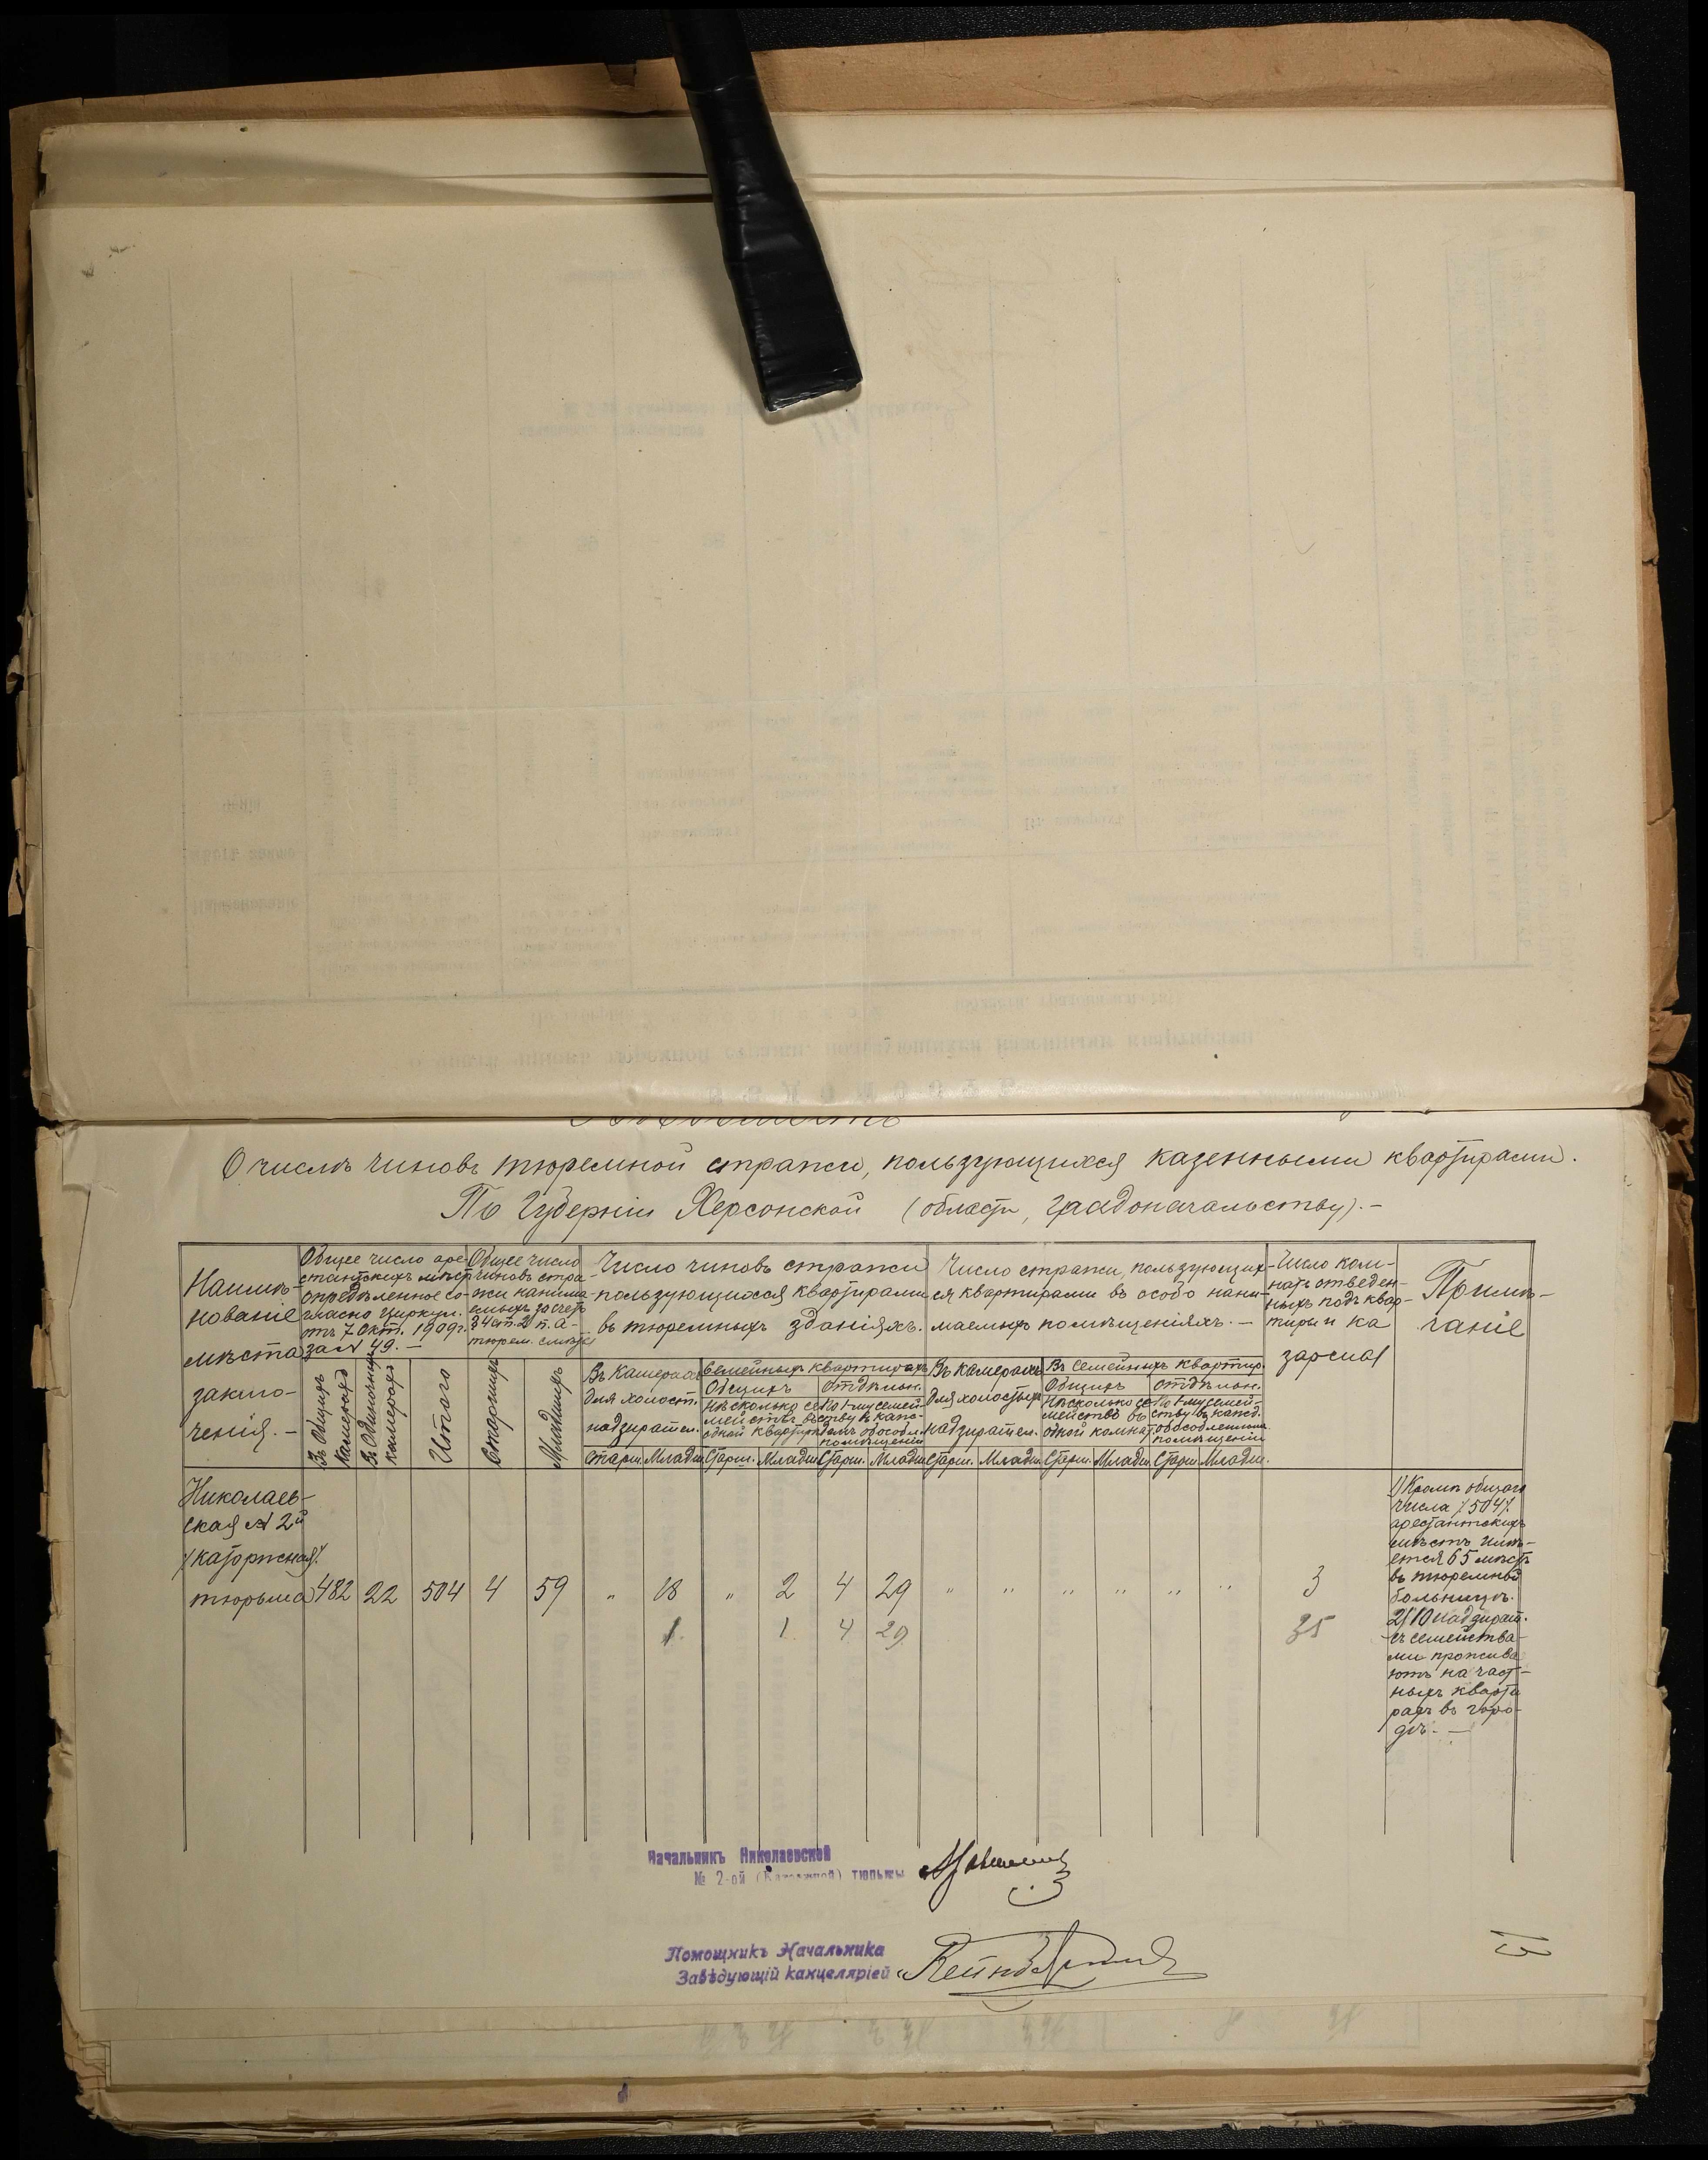 О числѣ чиновъ тюремной стражи, пользующихся казенными квартирами.
По Губерніи Херсонской (области, градоначальству).-
Наиме-
нованіе
мѣста
заклю-
ченія.-
Общее число аре-
стантскихъ мѣстъ
опредѣленное со-
гласно циркул.
отъ 7 Окт. 1909 г.
за № 49.-
Въ Общихъ
камерахъ
Въ Одиночныхъ
камерахъ
Итого
Общее число
чиновъ стра-
жи нанима-
емыхъ за счетъ
тюрем.
Старшихъ
Младшихъ
Число чиновъ стражи
пользующихся квартирами
въ тюремныхъ зданіяхъ.
Въ Камерахъ
для холост.
надзирател.
семейныхъ квартирахъ
Общихъ
Отдѣльн.
Нѣсколько се-
мействъ въ
одной квартирѣ
По 1-му семей-
ству въ каж-
домъ обособл.
помѣщеніи
Старш. Младш. Старш. Младш. Старш. Младш.
Число стражи, пользующих-
ся квартирами въ особо нани-
маемыхъ помѣщеніяхъ.-
Въ Камерахъ
для холостыхъ
надзирател.
Въ семейныхъ квартир.
Общихъ
отдѣльн.
Нѣсколько се-
мействъ въ
одной комнат.
По 1-му семей-
ству въ кажд.
обособленномъ
помѣщеніи
Старш. Младш. Старш. Младш. Старш. Младш.
Число ком-
натъ отведен-
ныхъ подъ квар-
тиры и ка
зармы
Примѣ-
чаніе
Николаев-
ская № 2й
/каторжная/
тюрьма 482 22 504 4 59 " 18 " 2 4 29 " " " " " " 3
1 1 4 29 35
1) Кромѣ общаго
числа /504/
арестантскихъ
мѣстъ имѣ-
ется 65 мѣстъ
въ тюремной
больницѣ.
2) 10 надзират.
съ семейства-
ми прожива
ютъ на част-
ныхъ кварти
рахъ въ горо-
дѣ.-
Начальникъ Николаевской
№ 2-ой (Каторжной) тюрьмы
Помощникъ Начальника
Завѣдующій канцеляріей
13